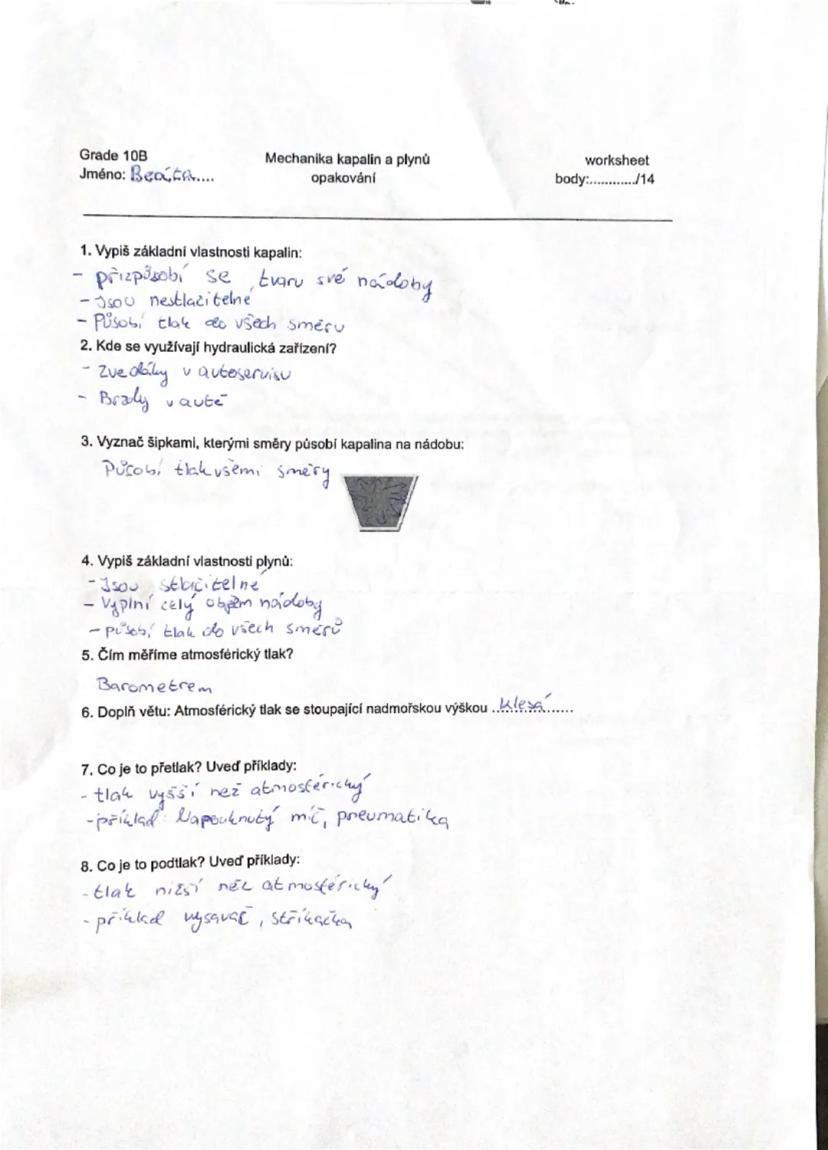 Grade 10B Mechanika kapalin a plynů worksheet
Jméno: Beáta.... opakování body:............/14
1. Vypiš základní vlastnosti kapalin:
- přizpůsobí se tvaru své nádoby
- Jsou nestlačitelné
- Působí tlak do všech směru
2. Kde se využívají hydraulická zařízení?
- Zvedáky v autoservisu
- Brzdy v autě
3. Vyznač šipkami, kterými směry působí kapalina na nádobu:
Působí tlak všemi směry
4. Vypiš základní vlastnosti plynů:
- Jsou stlačitelné
- Vyplní celý objem nádoby
- působí tlak do všech směrů
5. Čím měříme atmosférický tlak?
Barometrem
6. Doplň větu: Atmosférický tlak se stoupající nadmořskou výškou ..klesá......
7. Co je to přetlak? Uveď příklady:
- tlak vyšší než atmosférický
- příklad: Napouknutý míč, pneumatika
8. Co je to podtlak? Uveď příklady:
- tlak nižší než atmosférický
- příklad vysavač, stříkačka